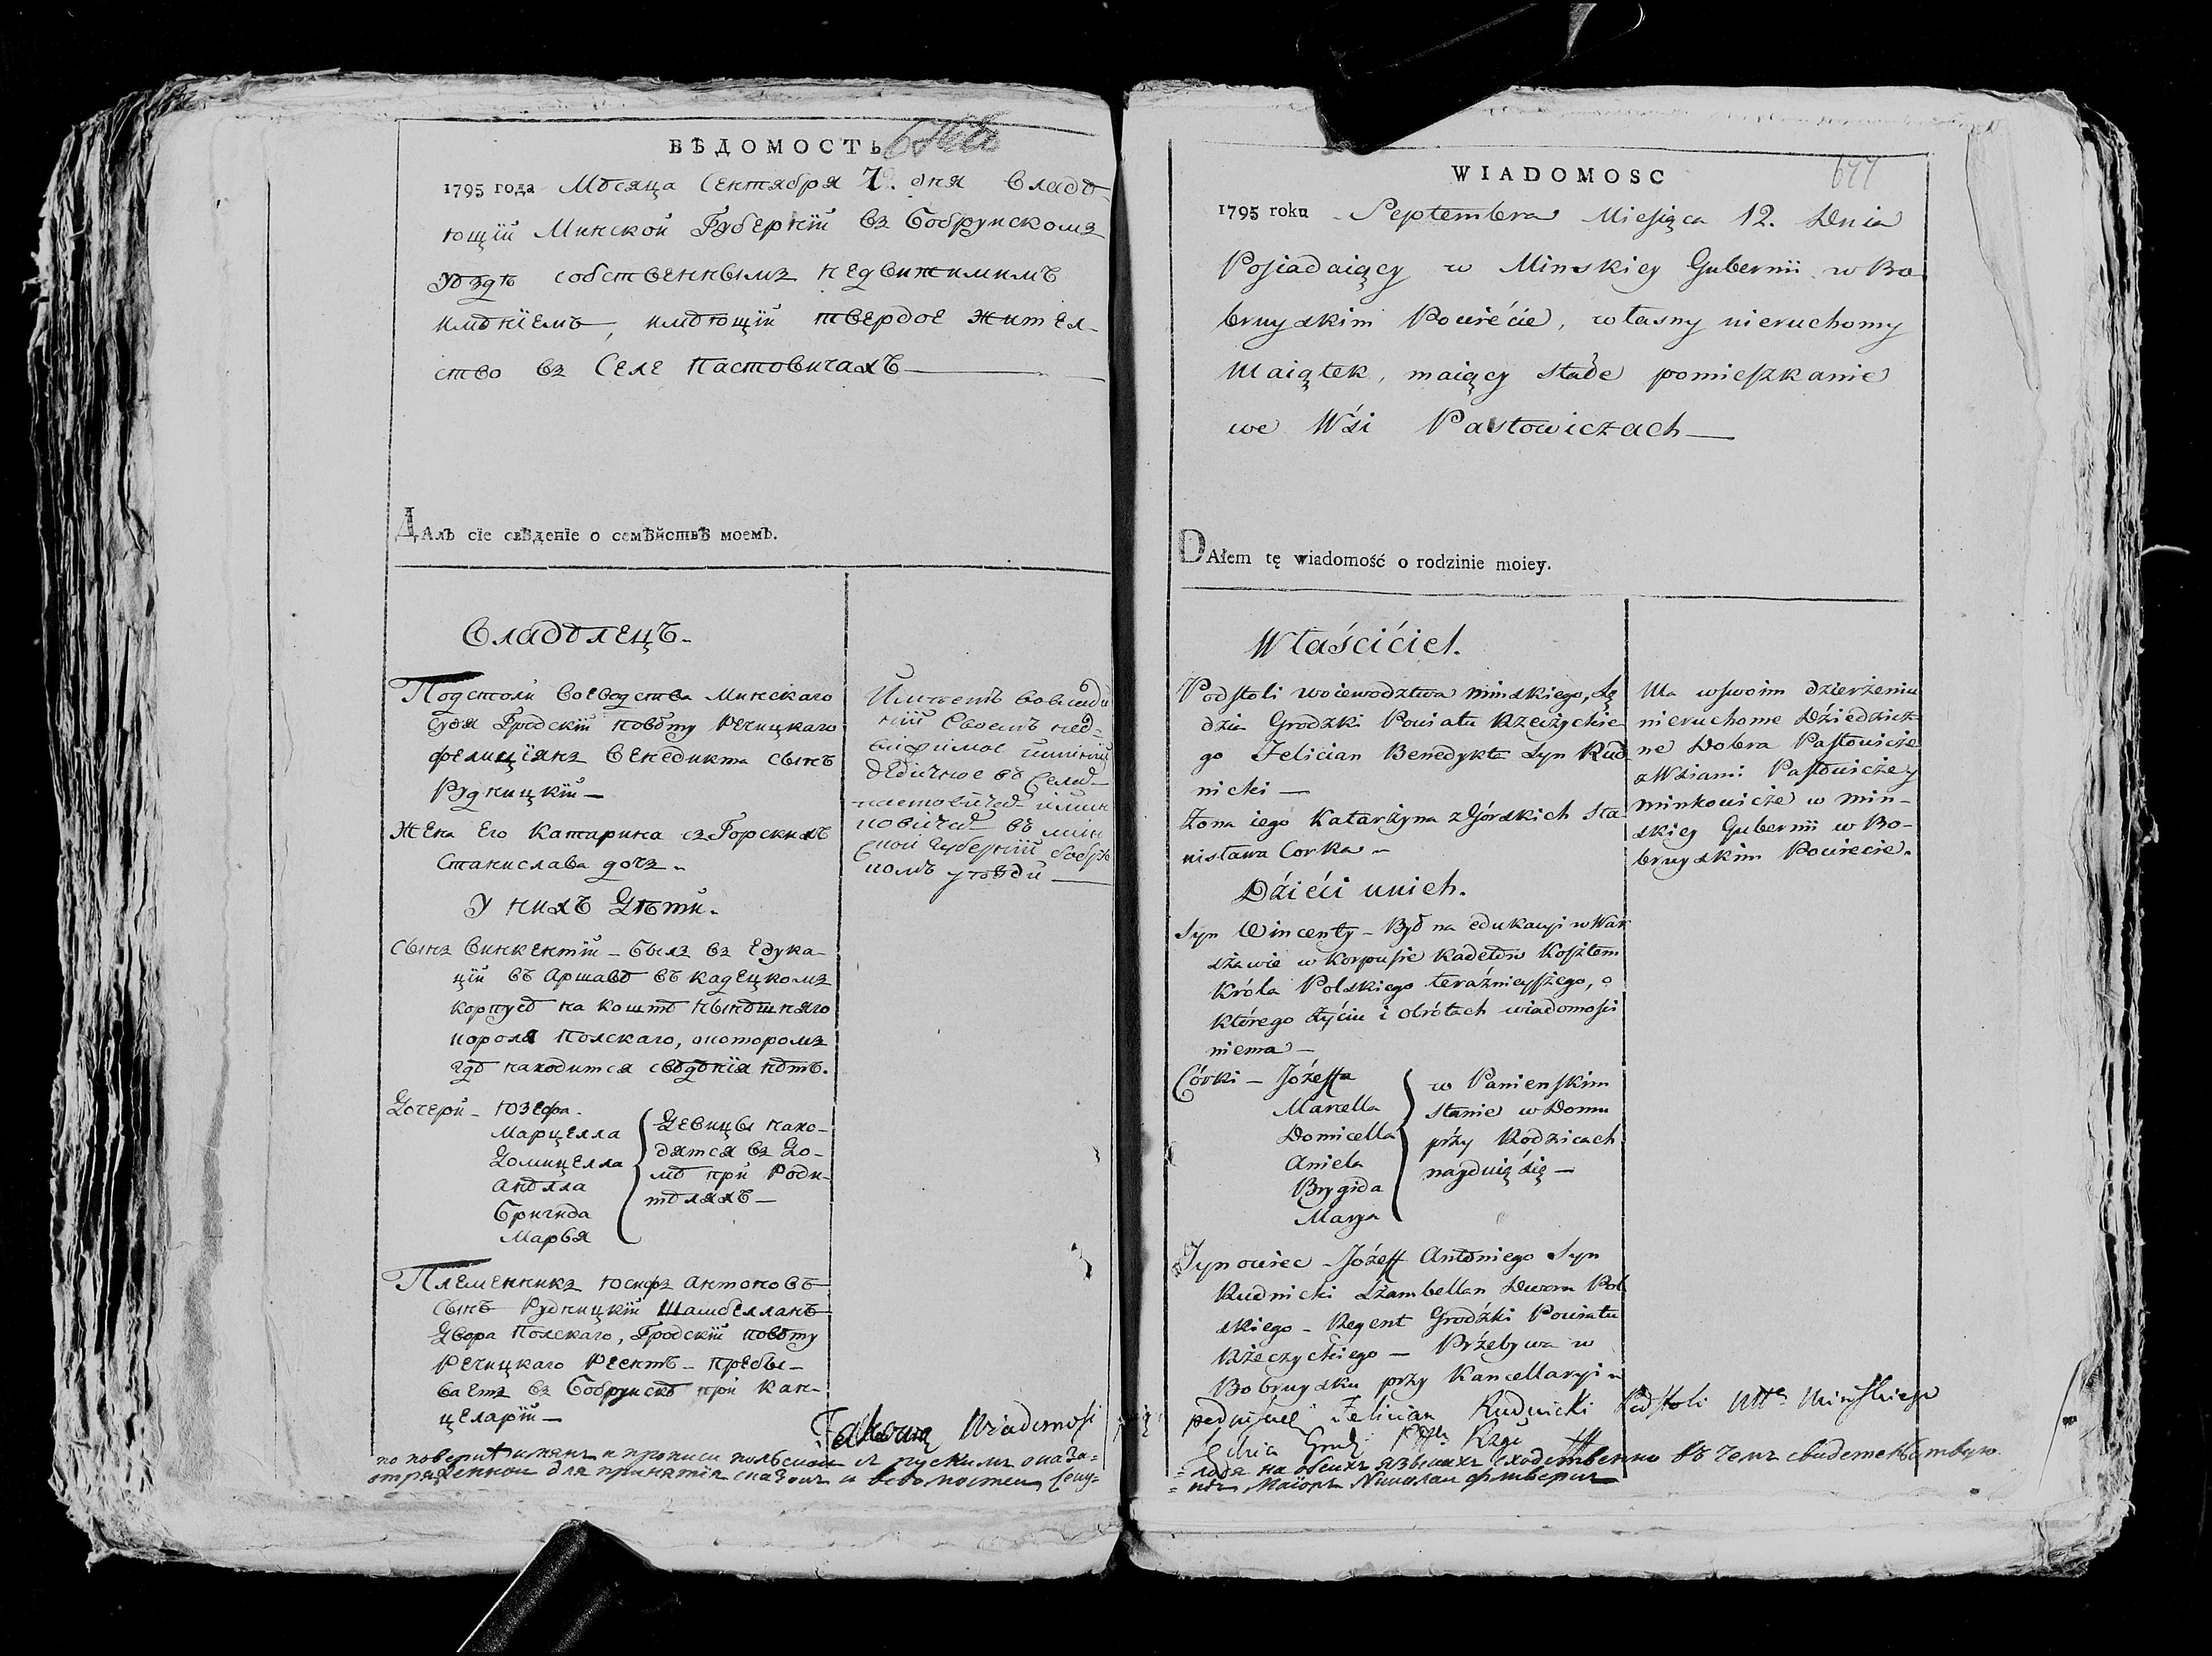 ВѢДОМОСТЬ
1795 года Мѣсяца Сентября дня Владѣ-
ющiй Минской Губернiи въ Бобруискомъ
Уѣздѣ собственнымъ недвижимимъ
имѣнiемъ, имѣющiй твердое жител-
ство въ Селе Пастовичахъ
Далъ сiе свѣденiе о семѣйствѣ моемъ.
Владѣлецъ.
Подстоли Воеводства Минскаго
судя Гродскiй повѣту Речицкаго
Фелицiянъ Бенедикта сынъ
Рудницкiй —
Жена Его Катарина зъ Горскихъ
Станислава дочъ.
У нихъ Дѣти.
Сынъ Винкентiй – былъ въ Едука-
цiи въ Аршавѣ въ кадецкомъ
корпусѣ на коштѣ нынѣшняго
короля Полскаго, о которомъ
гдѣ находится свѣдѣнiя нѣтъ.
Дочери – Юзефа.
Марцелла
Домицелла
Анѣлла
Бригида
Марья
Девицы нахо-
дятся въ До-
мѣ при Роди-
тѣляхъ —
Племенникъ Юсифъ Антоновъ
сынъ Рудницкiй Шамбелланъ
Двора Полскаго, Гродскiй повѣту
Речицкаго Реентъ – пребы-
ваетъ въ Бобруискѣ при кан-
целарiи —
Имѣетъ во владѣ
нiи Своемъ нед-
вижимое имѣнiе
дѣдичное въ Селѣ
WIADOMOSC
677
1795 roku Septembra Miesiąca 12. Dnia
Posiadaiący w Minskiey Gubernii w Bo-
bruyskim Powiećie, własny nieruchomy
Maiątek, maiący stałe pomieszkanie
we Wśi Pastowiczach —
DAłem tę wiadomość o rodzinie moiey.
Właśćićiel.
Podstoli woiewodztwa minskiego, Sę
dzia Grodzki Powiatu Rzeczyckie
go Felician Benedykta Syn Rud
nicki —
Żona iego Katarzyna z Górskich Sta-
nisława Corka –
Dźieći unich.
Syn Wincenty – Był na edukacyi w War
szawie w Korpusie Kadetów Kosztem
Króla Polskiego teraźnieyszego, o
którego życiu i obrótach wiadomości
niema –
Córki – Józeffa
Marcella
Domicella
Aniela
Brygida
Marya
w Panienskim
stanie w Domu
przy Rodzicach
nayduią się —
Synowiec – Józeff Antoniego Syn
Rudnicki Szambellan Dworu Pol
skiego – Regent Grodzki Powiatu
Rzeczyckiego — Przebywa w
Bobruysku przy Kancellaryi
Ma w swoim dzierżeniu
nieruchome Dźiedzicz-
ne Dobra Pastowicze
z Wsiami Pastowicze y
Minkowicze w Min-
skiey Gubernii w Bo-
bruyskim Powiecie.
Takową Wiadomość
podpisuię Felician Rudnicki Podstoli Minskiego
на обеихъ языкахъ сходственно въ чемъ свидетельствую
Маiоръ